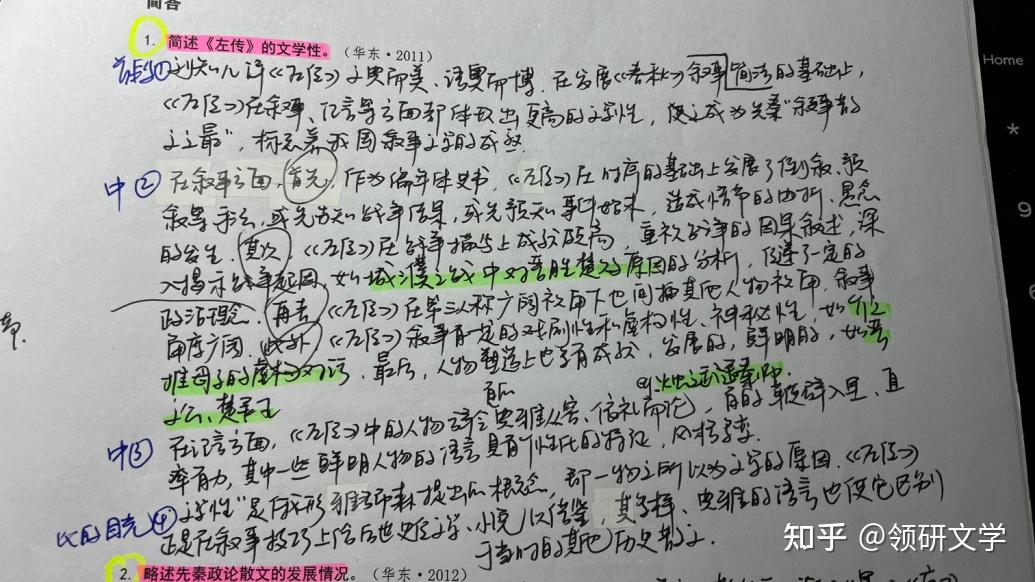 简答
1. 简述《左传》的文学性。（华东·2011）
Home
总1 ① 刘知几评《左传》文典而美、语典而博。在发展《春秋》叙事简洁的基础上，
《左传》在叙事、记言等方面都体现出更高的文学性，使之成为先秦"叙事散
文之最"，标志着我国叙事文学的成熟.
中 ② 在叙事方面，首先，作为编年体史书，《左传》在时序的基础上发展了倒叙、预
叙等手法，或先告知战争结果，或先预知事件始末，造成情节的曲折、悬念
的发生. 其次《左传》在战争描写上成就颇高，重视战争的因果叙述，深
入揭示战争起因，如城濮之战中对晋胜楚败原因的分析，传达了一定的
政治理念. 再者《左传》在第三人称广阔视角下也间插其他人物视角，叙事
角度广阔. 此外《左传》叙事有一定的戏剧性和虚构性、神秘性，如介之
推母子的虚构对话. 最后，人物塑造上也多有成就，发展的、鲜明的，如晋
文公、楚灵王
烛之武退秦师.
中 ③ 在记言方面，《左传》中的人物辞令典雅从容、依礼而论，有的鞭辟入里、直
率有力，其中一些鲜明人物的语言具有个性化的特征，风格多变.
④ "文学性"是俄形雅各布森提出的概念，即一物之所以为文学的原因.《左传》
正是在叙事技巧上给后世史传文学、小说以借鉴，其多样、典雅的语言也使它区别
于当时的其他历史散文.
知乎 @领研文学
2. 略述先秦政论散文的发展情况。（华东·2012）